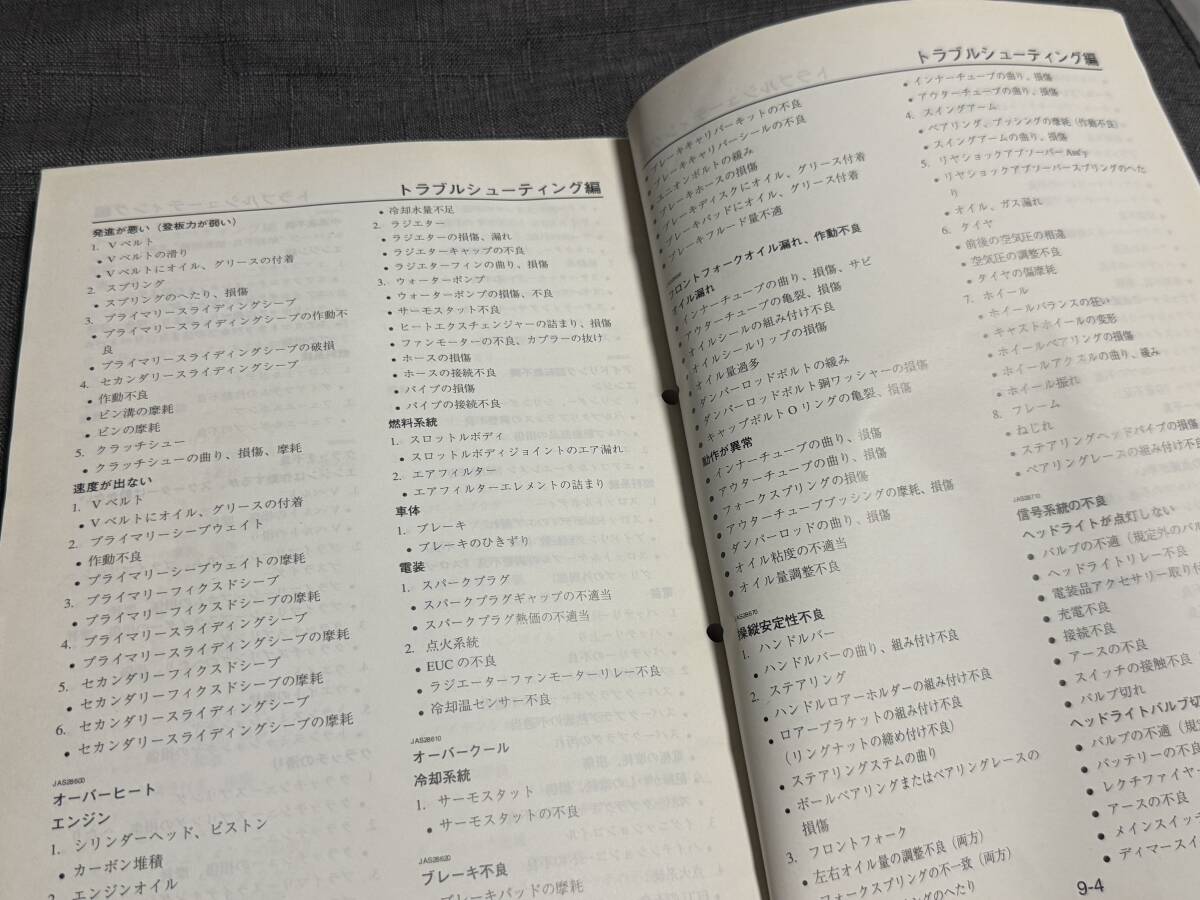 トラブルシューティング編
発進が悪い(登板力が弱い)
1. Vベルト
• Vベルトの滑り
• Vベルトにオイル、グリースの付着
2. スプリング
• スプリングのへたり、損傷
3. プライマリースライディングシーブ
• プライマリースライディングシーブの作動不
良
• プライマリースライディングシーブの破損
4. セカンダリースライディングシーブ
• 作動不良
• ピン溝の摩耗
• ピンの摩耗
5. クラッチシュー
• クラッチシューの曲り、損傷、摩耗
速度が出ない
1. Vベルト
• Vベルトにオイル、グリースの付着
2. プライマリーシーブウェイト
• 作動不良
• プライマリーシーブウェイトの摩耗
3. プライマリーフィクスドシーブ
• プライマリーフィクスドシーブの摩耗
4. プライマリースライディングシーブ
• プライマリースライディングシーブの摩耗
5. セカンダリーフィクスドシーブ
• セカンダリーフィクスドシーブの摩耗
6. セカンダリースライディングシーブ
• セカンダリースライディングシーブの摩耗
JAS28600
オーバーヒート
エンジン
1. シリンダーヘッド、ピストン
• カーボン堆積
2. エンジンオイル
• 冷却水量不足
2. ラジエター
• ラジエターの損傷、漏れ
• ラジエターキャップの不良
• ラジエターフィンの曲り、損傷
3. ウォーターポンプ
• ウォーターポンプの損傷、不良
• サーモスタット不良
• ヒートエクスチェンジャーの詰まり、損傷
• ファンモーターの不良、カプラーの抜け
• ホースの損傷
• ホースの接続不良
• パイプの損傷
• パイプの接続不良
燃料系統
1. スロットルボディ
• スロットルボディジョイントのエア漏れ
2. エアフィルター
• エアフィルターエレメントの詰まり
車体
1. ブレーキ
• ブレーキのひきずり
電装
1. スパークプラグ
• スパークプラグギャップの不適当
• スパークプラグ熱価の不適当
2. 点火系統
• EUCの不良
• ラジエーターファンモーターリレー不良
• 冷却温センサー不良
JAS28610
オーバークール
冷却系統
1. サーモスタット
• サーモスタットの不良
JAS28620
ブレーキ不良
• ブレーキパッドの摩耗
トラブルシューティング編
• ブレーキキャリパーキットの不良
• ブレーキキャリパーシールの不良
• ユニオンボルトの緩み
• ブレーキホースの損傷
• ブレーキディスクにオイル、グリース付着
• ブレーキパッドにオイル、グリース付着
• ブレーキフルード量不適
フロントフォークオイル漏れ、作動不良
オイル漏れ
• インナーチューブの曲り、損傷、サビ
• アウターチューブの亀裂、損傷
• オイルシールの組み付け不良
• オイルシールリップの損傷
• オイル量過多
• ダンパーロッドボルトの緩み
• ダンパーロッドボルト銅ワッシャーの損傷
• キャップボルトOリングの亀裂、損傷
動作が異常
• インナーチューブの曲り、損傷
• アウターチューブの曲り、損傷
• フォークスプリングの損傷
• アウターチューブブッシングの摩耗、損傷
• ダンパーロッドの曲り、損傷
• オイル粘度の不適当
• オイル量調整不良
JAS28670
操縦安定性不良
1. ハンドルバー
• ハンドルバーの曲り、組み付け不良
2. ステアリング
• ハンドルロアーホルダーの組み付け不良
• ロアーブラケットの組み付け不良
(リングナットの締め付け不良)
• ステアリングステムの曲り
• ボールベアリングまたはベアリングレースの
損傷
3. フロントフォーク
• 左右オイル量の調整不良(両方)
• フォークスプリングの不一致(両方)
• インナーチューブの曲り、損傷
• アウターチューブの曲り、損傷
4. スイングアーム
• ベアリング、ブッシングの摩耗(作動不良)
• スイングアームの曲り、損傷
5. リヤショックアブソーバーAss'y
• リヤショックアブソーバースプリングのへた
り
• オイル、ガス漏れ
6. タイヤ
• 前後の空気圧の相違
• 空気圧の調整不良
• タイヤの偏摩耗
7. ホイール
• ホイールバランスの狂い
• キャストホイールの変形
• ホイールベアリングの損傷
• ホイールアクスルの曲り、緩み
• ホイール振れ
8. フレーム
• ねじれ
• ステアリングヘッドパイプの損傷
• ベアリングレースの組み付け不良
JAS28710
信号系統の不良
ヘッドライトが点灯しない
• バルブの不適(規定外のバル
• ヘッドライトリレー不良
• 電装品アクセサリー取り付
• 充電不良
• 接続不良
• アースの不良
• スイッチの接触不良
• バルブ切れ
ヘッドライトバルブ切
• バルブの不適(規定
• バッテリーの不良
• レクチファイヤー
• アースの不良
• メインスイッチ
• ディマースイ
9-4